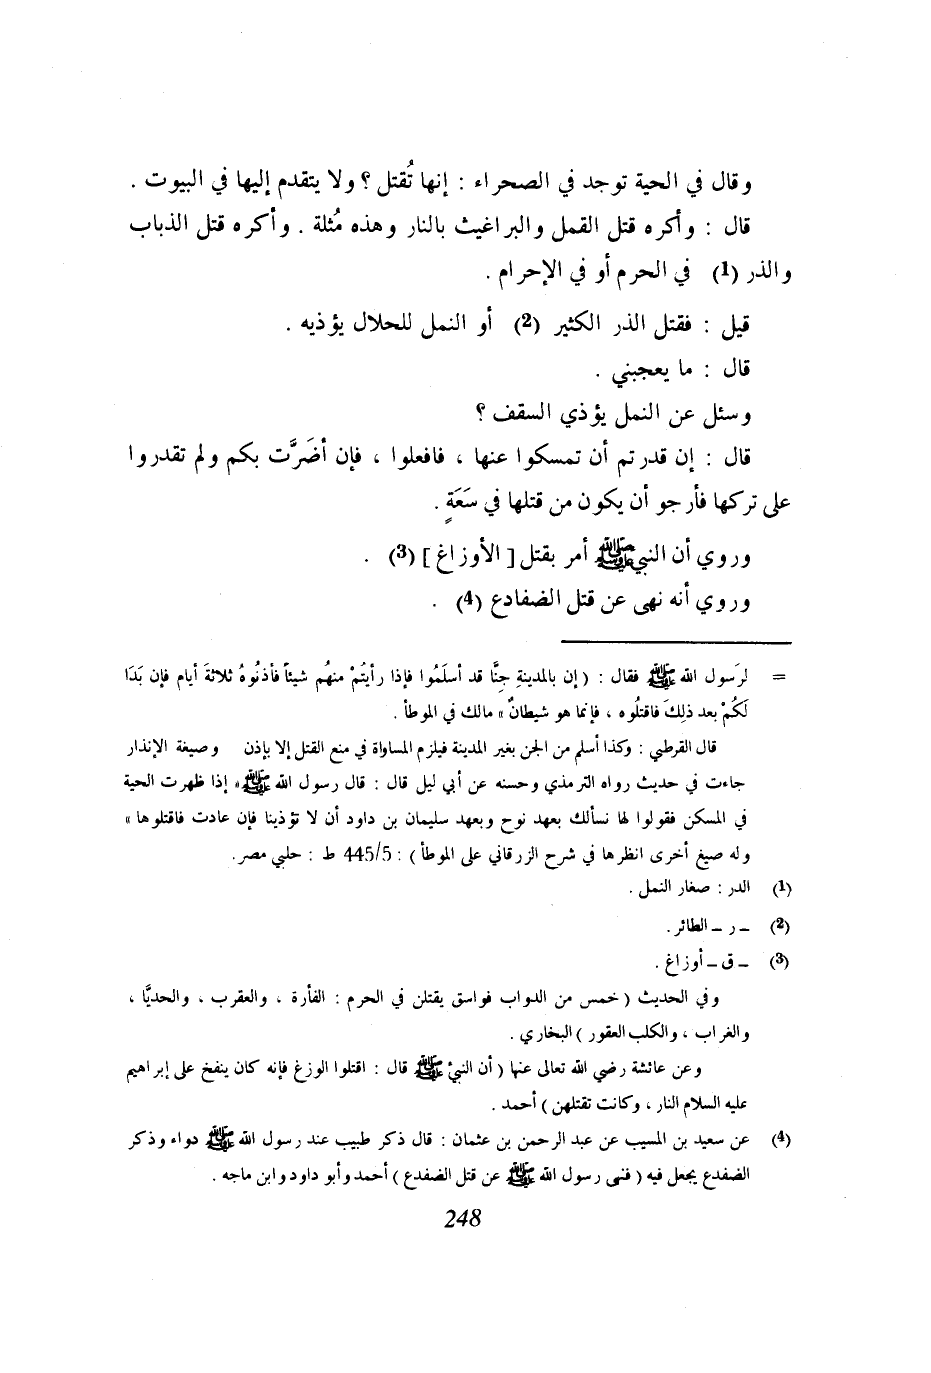 وقال في الحية توجد في الصحراء : إنها تُقتل ؟ ولا يتقدم إليها في البيوت .
قال : وأكره قتل القمل والبراغيث بالنار وهذه مُثلة . وأكره قتل الذباب
والذر (1) في الحرم أو في الإحرام .
قيل : فقتل الذر الكثير (2) أو النمل للحلال يؤذيه .
قال : ما يعجبني .
وسئل عن النمل يؤذي السقف ؟
قال : إن قدرتم أن تمسكوا عنها ، فافعلوا ، فإن أضَرَّت بكم ولم تقدروا
على تركها فأرجو أن يكون من قتلها في سَعَةٍ .
وروي أن النبي ﷺ أمر بقتل [ الأوزاغ ] (3) .
وروي أنه نهى عن قتل الضفادع (4) .
= لرَسول الله ﷺ فقال : ( إن بالمدينةِ جِنَّا قد أسلَمُوا فإذا رأيتُمْ منهُم شيئاً فأذنُوهُ ثلاثةَ أيام فإن بَدَا
لَكُمْ بعد ذلِكَ فاقتلُوه ، فإنما هو شيطانٌ » مالك في الموطأ .
قال القرطبي : وكذا أسلم من الجن بغير المدينة فيلزم المساواة في منع القتل إلا بإذن وصيغة الإنذار
جاءت في حديث رواه الترمذي وحسنه عن أبي ليل قال : قال رسول الله ﷺ « إذا ظهرت الحية
في المسكن فقولوا لها نسألك بعهد نوح وبعهد سليمان بن داود أن لا تؤذينا فإن عادت فاقتلوها »
وله صيغ أخرى انظرها في شرح الزرقاني على الموطأ ) : 445/5 ط : حلبي مصر.
(1) الدر : صغار النمل .
(2) – ر – الطائر .
(3) – ق – أوزاغ .
وفي الحديث ( خمس من الدواب فواسق يقتلن في الحرم : الفأرة ، والعقرب ، والحديَّا ،
والغراب ، والكلب العقور ) البخاري .
وعن عائشة رضي الله تعالى عنها ( أن النبيْ ﷺ قال : اقتلوا الوزغ فإنه كان ينفخ على إبراهيم
عليه السلام النار ، وكانت تقتلهن ) أحمد .
(4) عن سعيد بن المسيب عن عبد الرحمن بن عثمان : قال ذكر طبيب عند رسول الله ﷺ دواء وذكر
الضفدع يجعل فيه ( فنهى رسول الله ﷺ عن قتل الضفدع ) أحمد وأبو داود وابن ماجه .
248